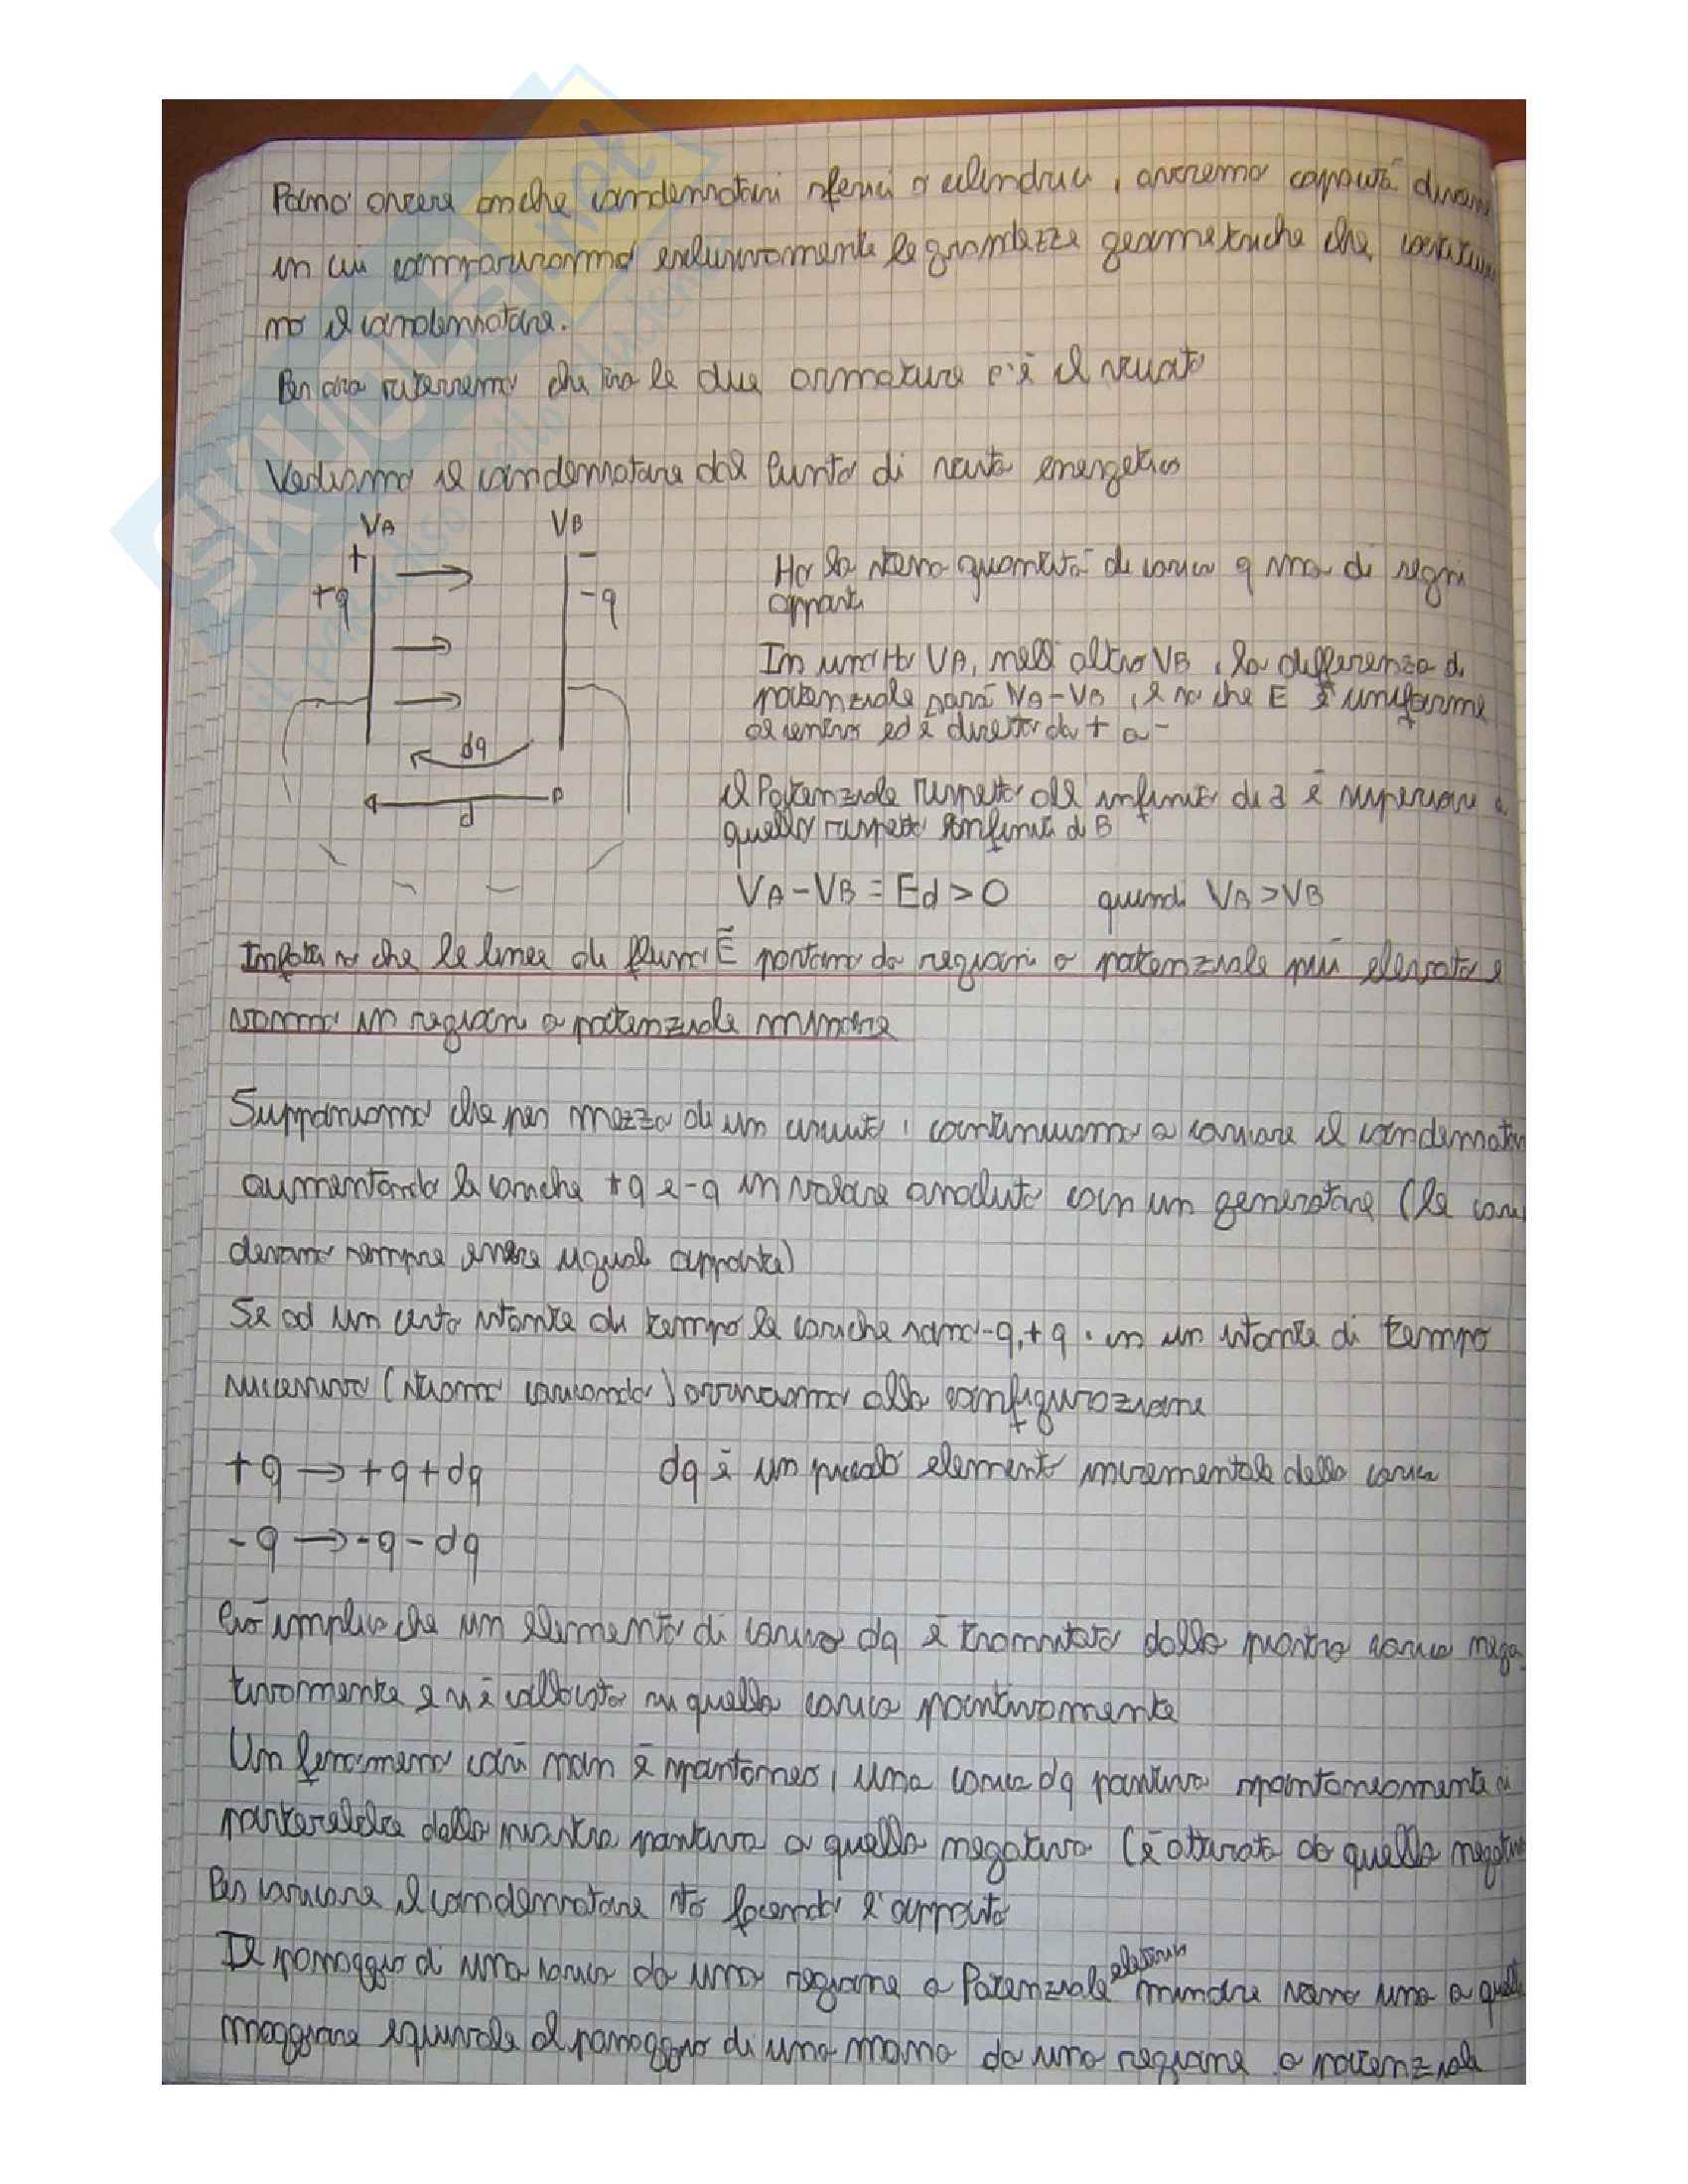 Posso avere anche condensatori sferici o cilindrici, avremo capacità diverse
in cui compariranno esclusivamente le grandezze geometriche che costituisco
no il condensatore.
Per ora riterremo che tra le due armature c'è il vuoto
Vediamo il condensatore dal punto di vista energetico
VA VB
+ -
+q -q
dq
d
Ho la stessa quantità di carica q ma di segni
opposti
In una ho VA, nell'altro VB, la differenza di
potenziale sarà VA-VB, e so che E è uniforme
al centro ed è diretto da + a -
il Potenziale rispetto all'infinito di a è superiore a
quello rispetto infinito di B
VA-VB = Ed > 0 quindi VA > VB
Infatti so che le linee di flusso E partono da regioni a potenziale più elevato e
vanno in regioni a potenziale minore
Supponiamo che per mezzo di un circuito, continuiamo a caricare il condensatore
aumentando le cariche +q e -q in valore assoluto con un generatore (le cari
devono sempre essere uguali opposte)
Se ad un certo istante di tempo le cariche sono -q, +q, in un istante di tempo
successivo (stiamo caricando) arriviamo alla configurazione
+q → +q+dq dq è un piccolo elemento incrementale della carica
-q → -q-dq
Ciò implica che un elemento di carica dq è trasmutato dalla piastra carica nega
tivamente e si è collocato su quella carica positivamente
Un fenomeno così non è spontaneo, una carica dq positiva spontaneamente si
sposterebbe dalla piastra positiva a quella negativa (è attirata da quella negativa
Per caricare il condensatore sto facendo l'opposto
Il passaggio di una carica da una regione a Potenziale elettrico minore verso una a quella
maggiore equivale al passaggio di una massa da una regione a potenziale